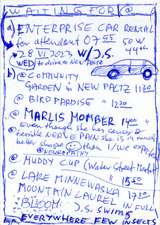 WAITING FOR @
a) ENTERPRISE CAR RENTAL
for attendent 07:55 50 W 44th
* 28 VI 2023 W/J.S.
WED to drive to NEW PALTZ
b) @ COMMUNITY
GARDEN in NEW PALTZ 11
@ BIRD PARDISE 12
@ MARLIS MOMBER 14
even though she has cancer &
terrible NERVE PAIN she is in much
better shape than I/we expected
@ MUDDY CUP (Water Street Market)
@ LAKE MINNEWASKA
MOUNTAIN LAUREL IN FULL
BLOOM. J.S. SWIMS
EVERYWHERE FEW INSECTS